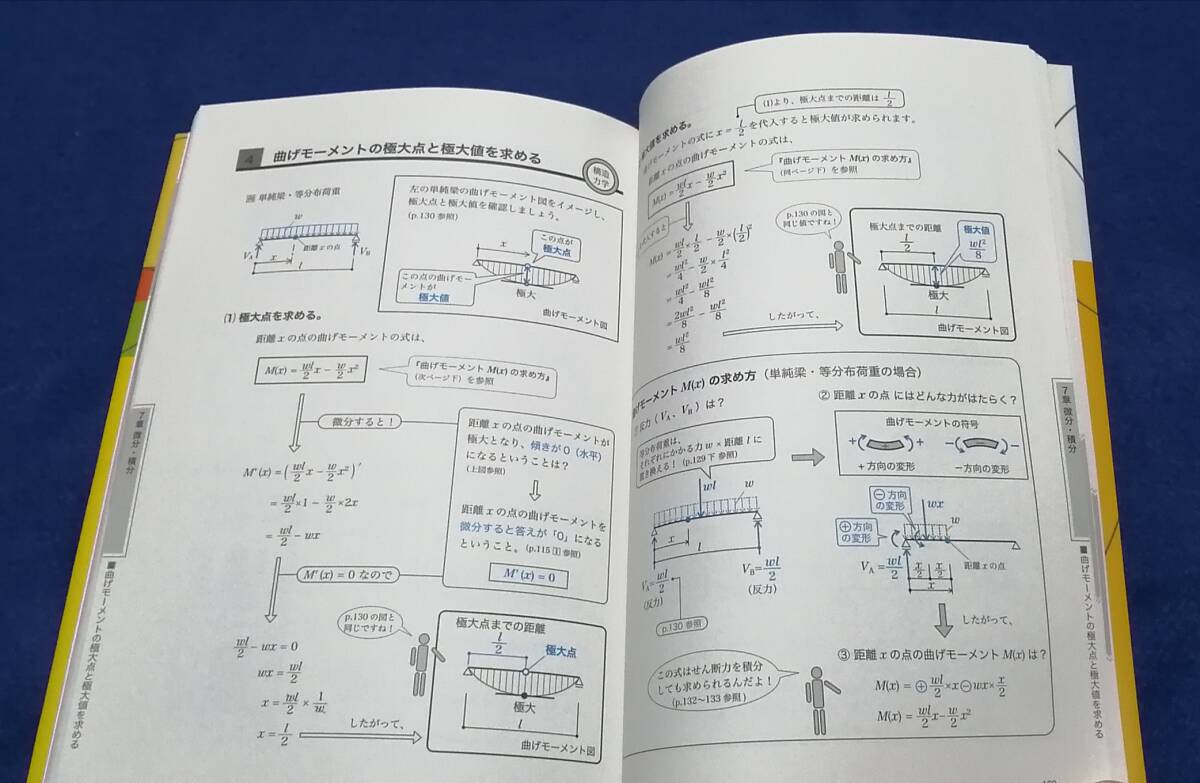 4 曲げモーメントの極大点と極大値を求める
構造
力学
単純梁・等分布荷重
w
距離xの点
V_A
V_B
x
l
左の単純梁の曲げモーメント図をイメージし、
極大点と極大値を確認しましょう。
(p.130 参照)
x
この点が
極大点
この点の曲げモー
メントが
極大値
極大
曲げモーメント図
(1) 極大点を求める。
距離xの点の曲げモーメントの式は、
M(x)=wl/2 x−w/2 x²
『曲げモーメント M(x) の求め方』
(次ページ下) を参照
微分すると!
M'(x)=(wl/2 x−w/2 x²)'
=wl/2×1−w/2×2x
=wl/2−wx
距離xの点の曲げモーメントが
極大となり、傾きが0(水平)
になるということは?
(上図参照)
距離xの点の曲げモーメントを
微分すると答えが「0」になる
ということ。(p.115 1 参照)
M'(x)=0
M'(x)=0 なので
wl/2−wx=0
wx=wl/2
x=wl/2×1/w
x=l/2
したがって、
p.130の図と
同じですね!
極大点までの距離
l/2
極大点
極大
l
曲げモーメント図
7章 微分・積分
■曲げモーメントの極大点と極大値を求める
大値を求める。
(1)より、極大点までの距離は l/2
げモーメントの式にx=l/2を代入すると極大値が求められます。
距離xの点の曲げモーメントの式は、
M(x)=wl/2 x−w/2 x²
『曲げモーメント M(x) の求め方』
(同ページ下) を参照
入すると
M(x)=wl/2×l/2−w/2×(l/2)²
=wl²/4−w/2×l²/4
=wl²/4−wl²/8
=2wl²/8−wl²/8
=wl²/8
したがって、
p.130の図と
同じ値ですね!
極大点までの距離
l/2
極大値
wl²/8
極大
l
曲げモーメント図
げモーメント M(x) の求め方(単純梁・等分布荷重の場合)
反力(V_A、V_B)は?
等分布荷重は、
それぞれにかかる力w×距離lに
置き換える! (p.129下参照)
wl
w
x
l
V_A=wl/2
(反力)
V_B=wl/2
(反力)
p.130 参照
② 距離xの点 にはどんな力がはたらく?
曲げモーメントの符号
+ +
+方向の変形
− −
−方向の変形
−方向
の変形
wx
+方向
の変形
w
V_A=wl/2
x/2 x/2
x
距離xの点
したがって、
③ 距離xの点の曲げモーメント M(x) は?
M(x)=⊕wl/2×x⊖wx×x/2
M(x)=wl/2 x−w/2 x²
この式はせん断力を積分
しても求められるんだよ!
(p.132〜133 参照)
7章 微分・積分
■曲げモーメントの極大点と極大値を求める